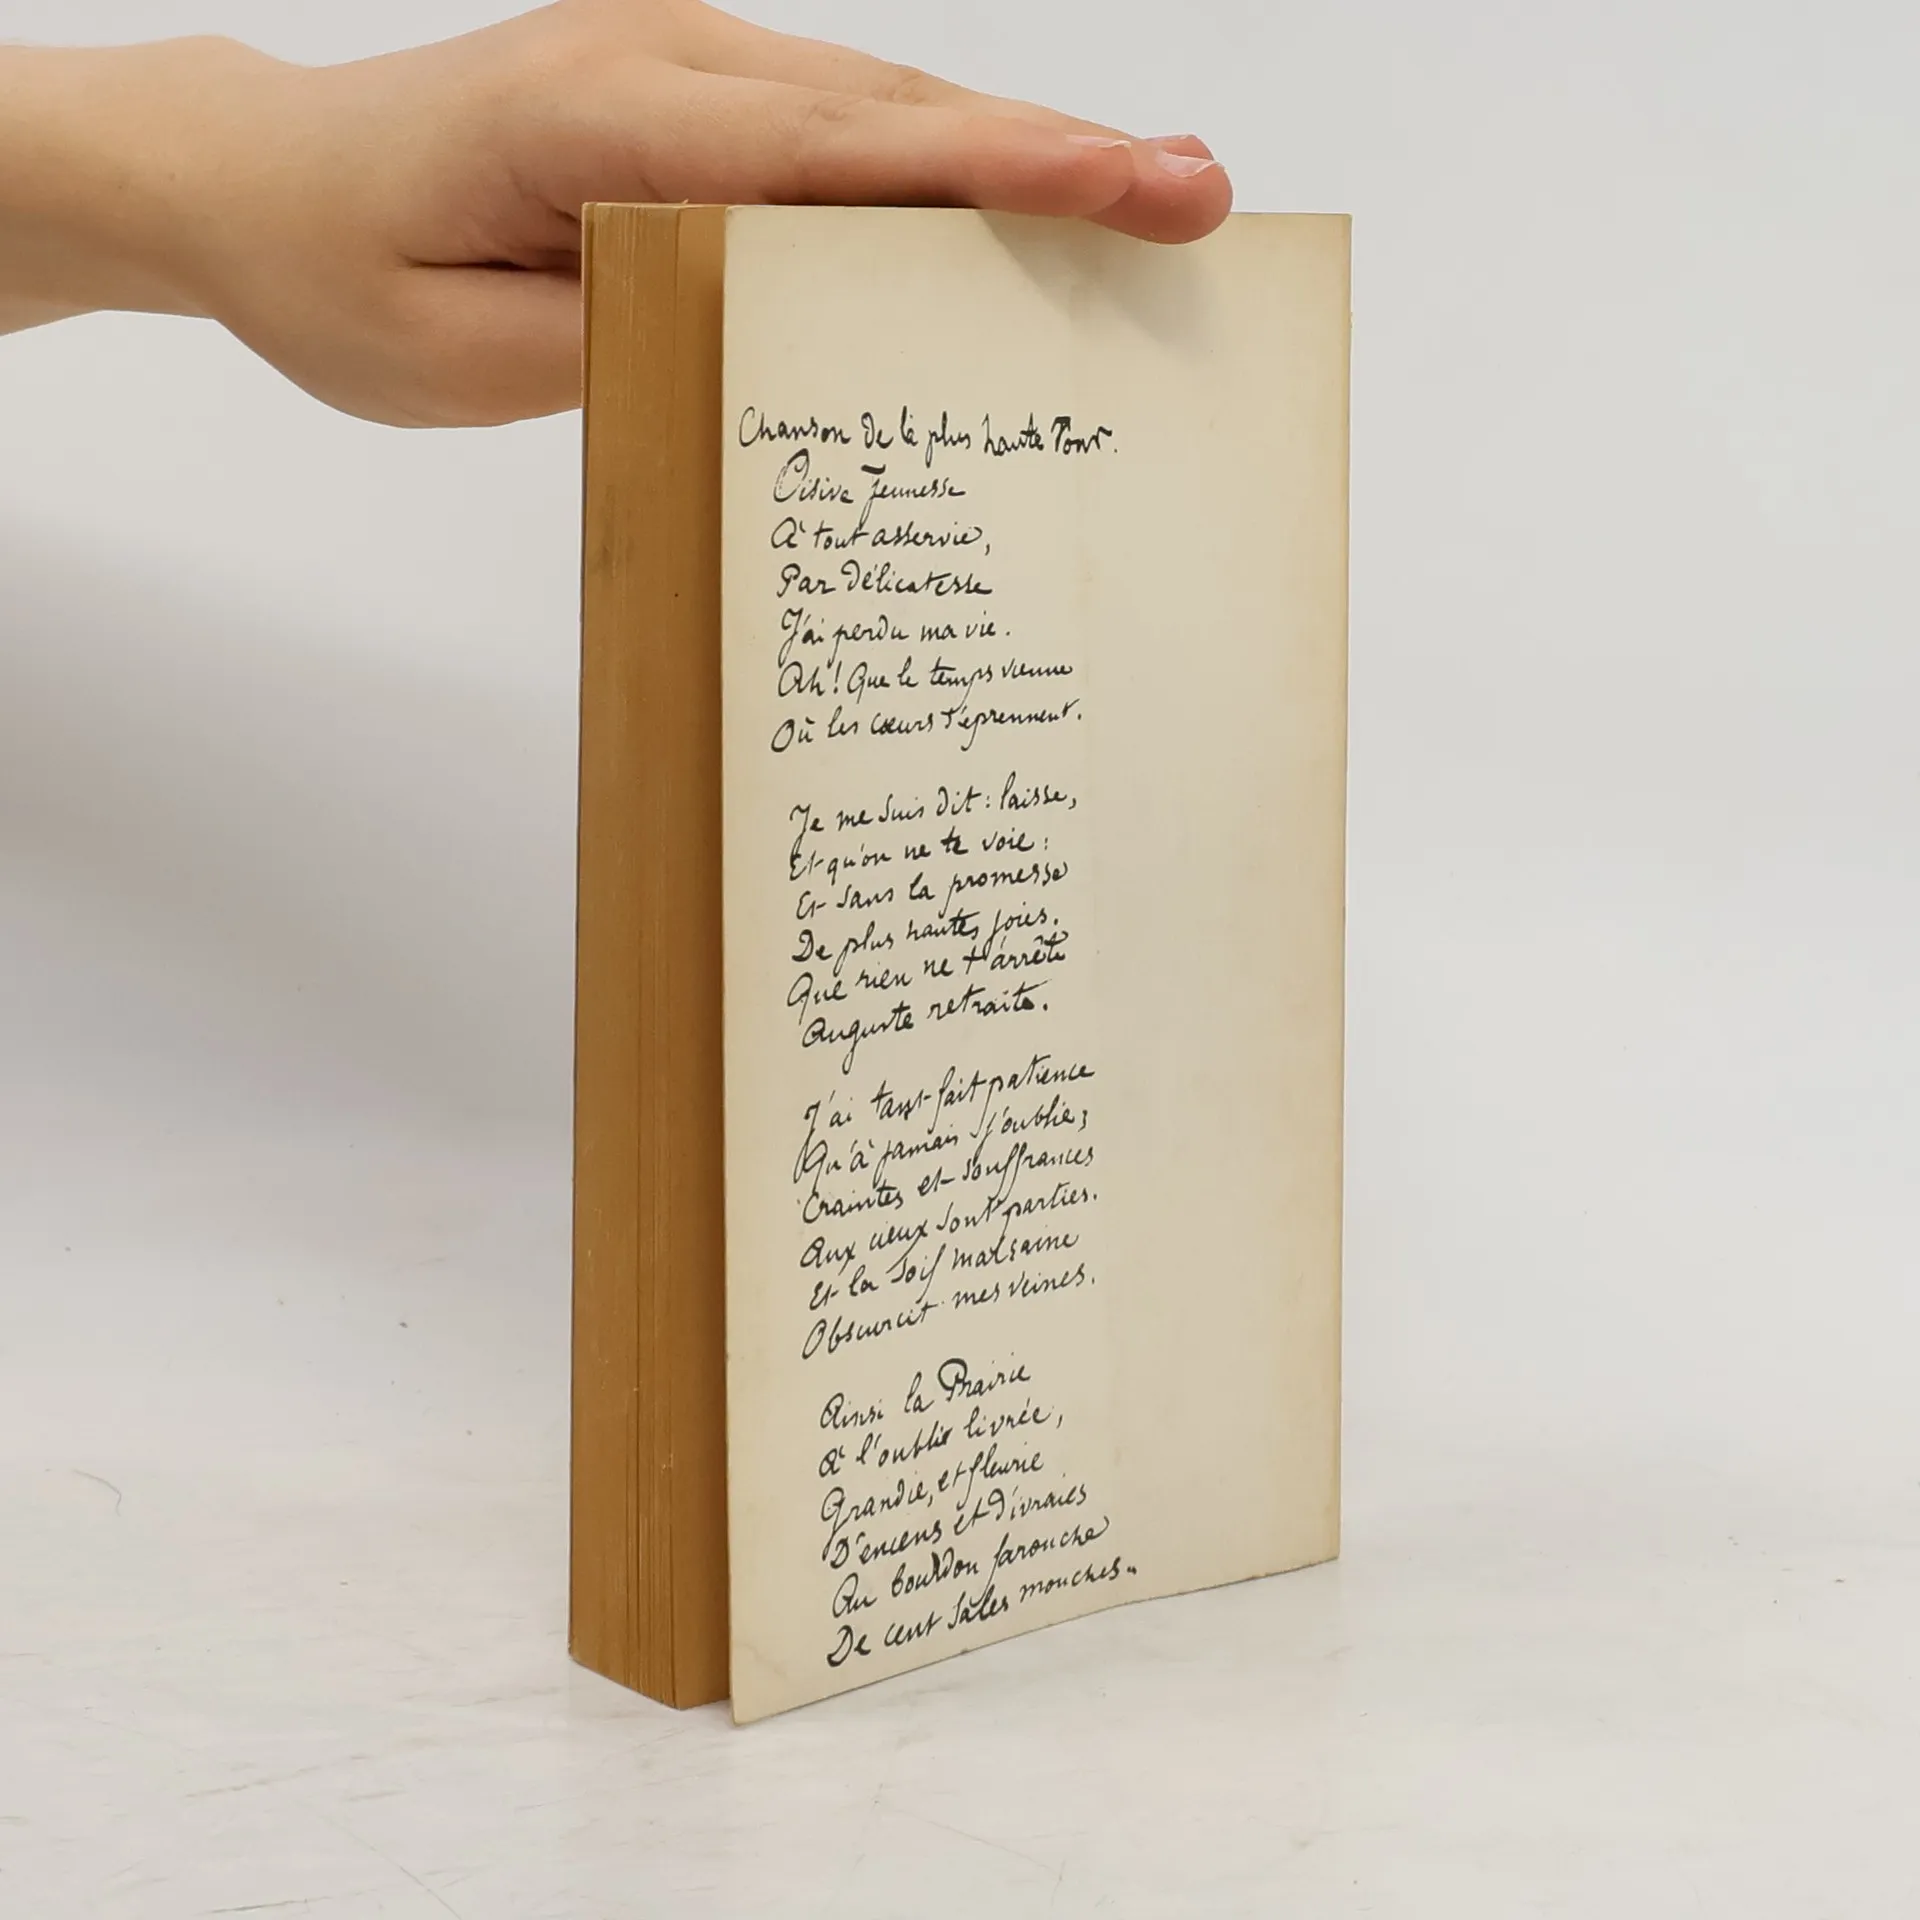 Chanson de la plus haute Tour.
Oisive jeunesse
À tout asservie,
Par délicatesse
J'ai perdu ma vie.
Ah! Que le temps vienne
Où les cœurs s'éprennent.
Je me suis dit : laisse,
Et qu'on ne te voie :
Et sans la promesse
De plus hautes joies.
Que rien ne t'arrête
Auguste retraite.
J'ai tant fait patience
Qu'à jamais j'oublie ;
Craintes et souffrances
Aux cieux sont parties.
Et la soif malsaine
Obscurcit mes veines.
Ainsi la Prairie
À l'oubli livrée,
Grandie, et fleurie
D'encens et d'ivraies
Au bourdon farouche
De cent sales mouches.